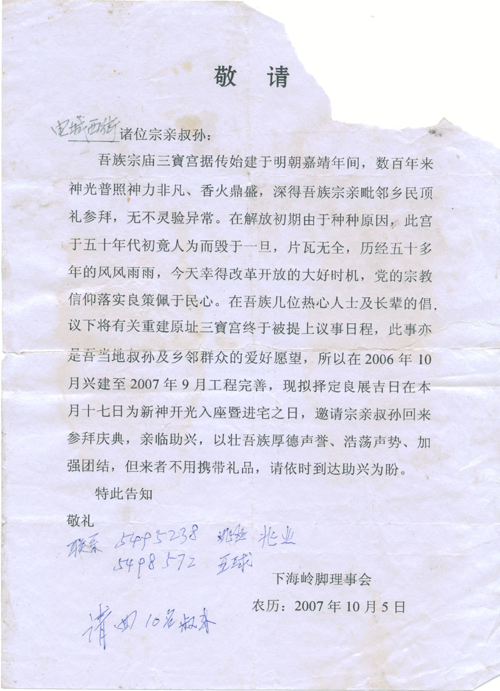 敬 请
电城西街诸位宗亲叔孙：
吾族宗庙三寳宫据传始建于明朝嘉靖年间，数百年来
神光普照神力非凡、香火鼎盛，深得吾族宗亲毗邻乡民顶
礼参拜，无不灵验异常。在解放初期由于种种原因，此宫
于五十年代初竟人为而毁于一旦，片瓦无全，历经五十多
年的风风雨雨，今天幸得改革开放的大好时机，党的宗教
信仰落实良策佩于民心。在吾族几位热心人士及长辈的倡
议下将有关重建原址三寳宫终于被提上议事日程，此事亦
是吾当地叔孙及乡邻群众的爱好愿望，所以在 2006 年 10
月兴建至 2007 年 9 月工程完善，现拟择定良展吉日在本
月十七日为新神开光入座暨进宅之日，邀请宗亲叔孙回来
参拜庆典，亲临助兴，以壮吾族厚德声誉、浩荡声势、加
强团结，但来者不用携带礼品，请依时到达助兴为盼。
特此告知
敬礼
联系 5495238 兆业
5498572 亚球
下海岭脚理事会
农历：2007 年 10 月 5 日
请 10名叔